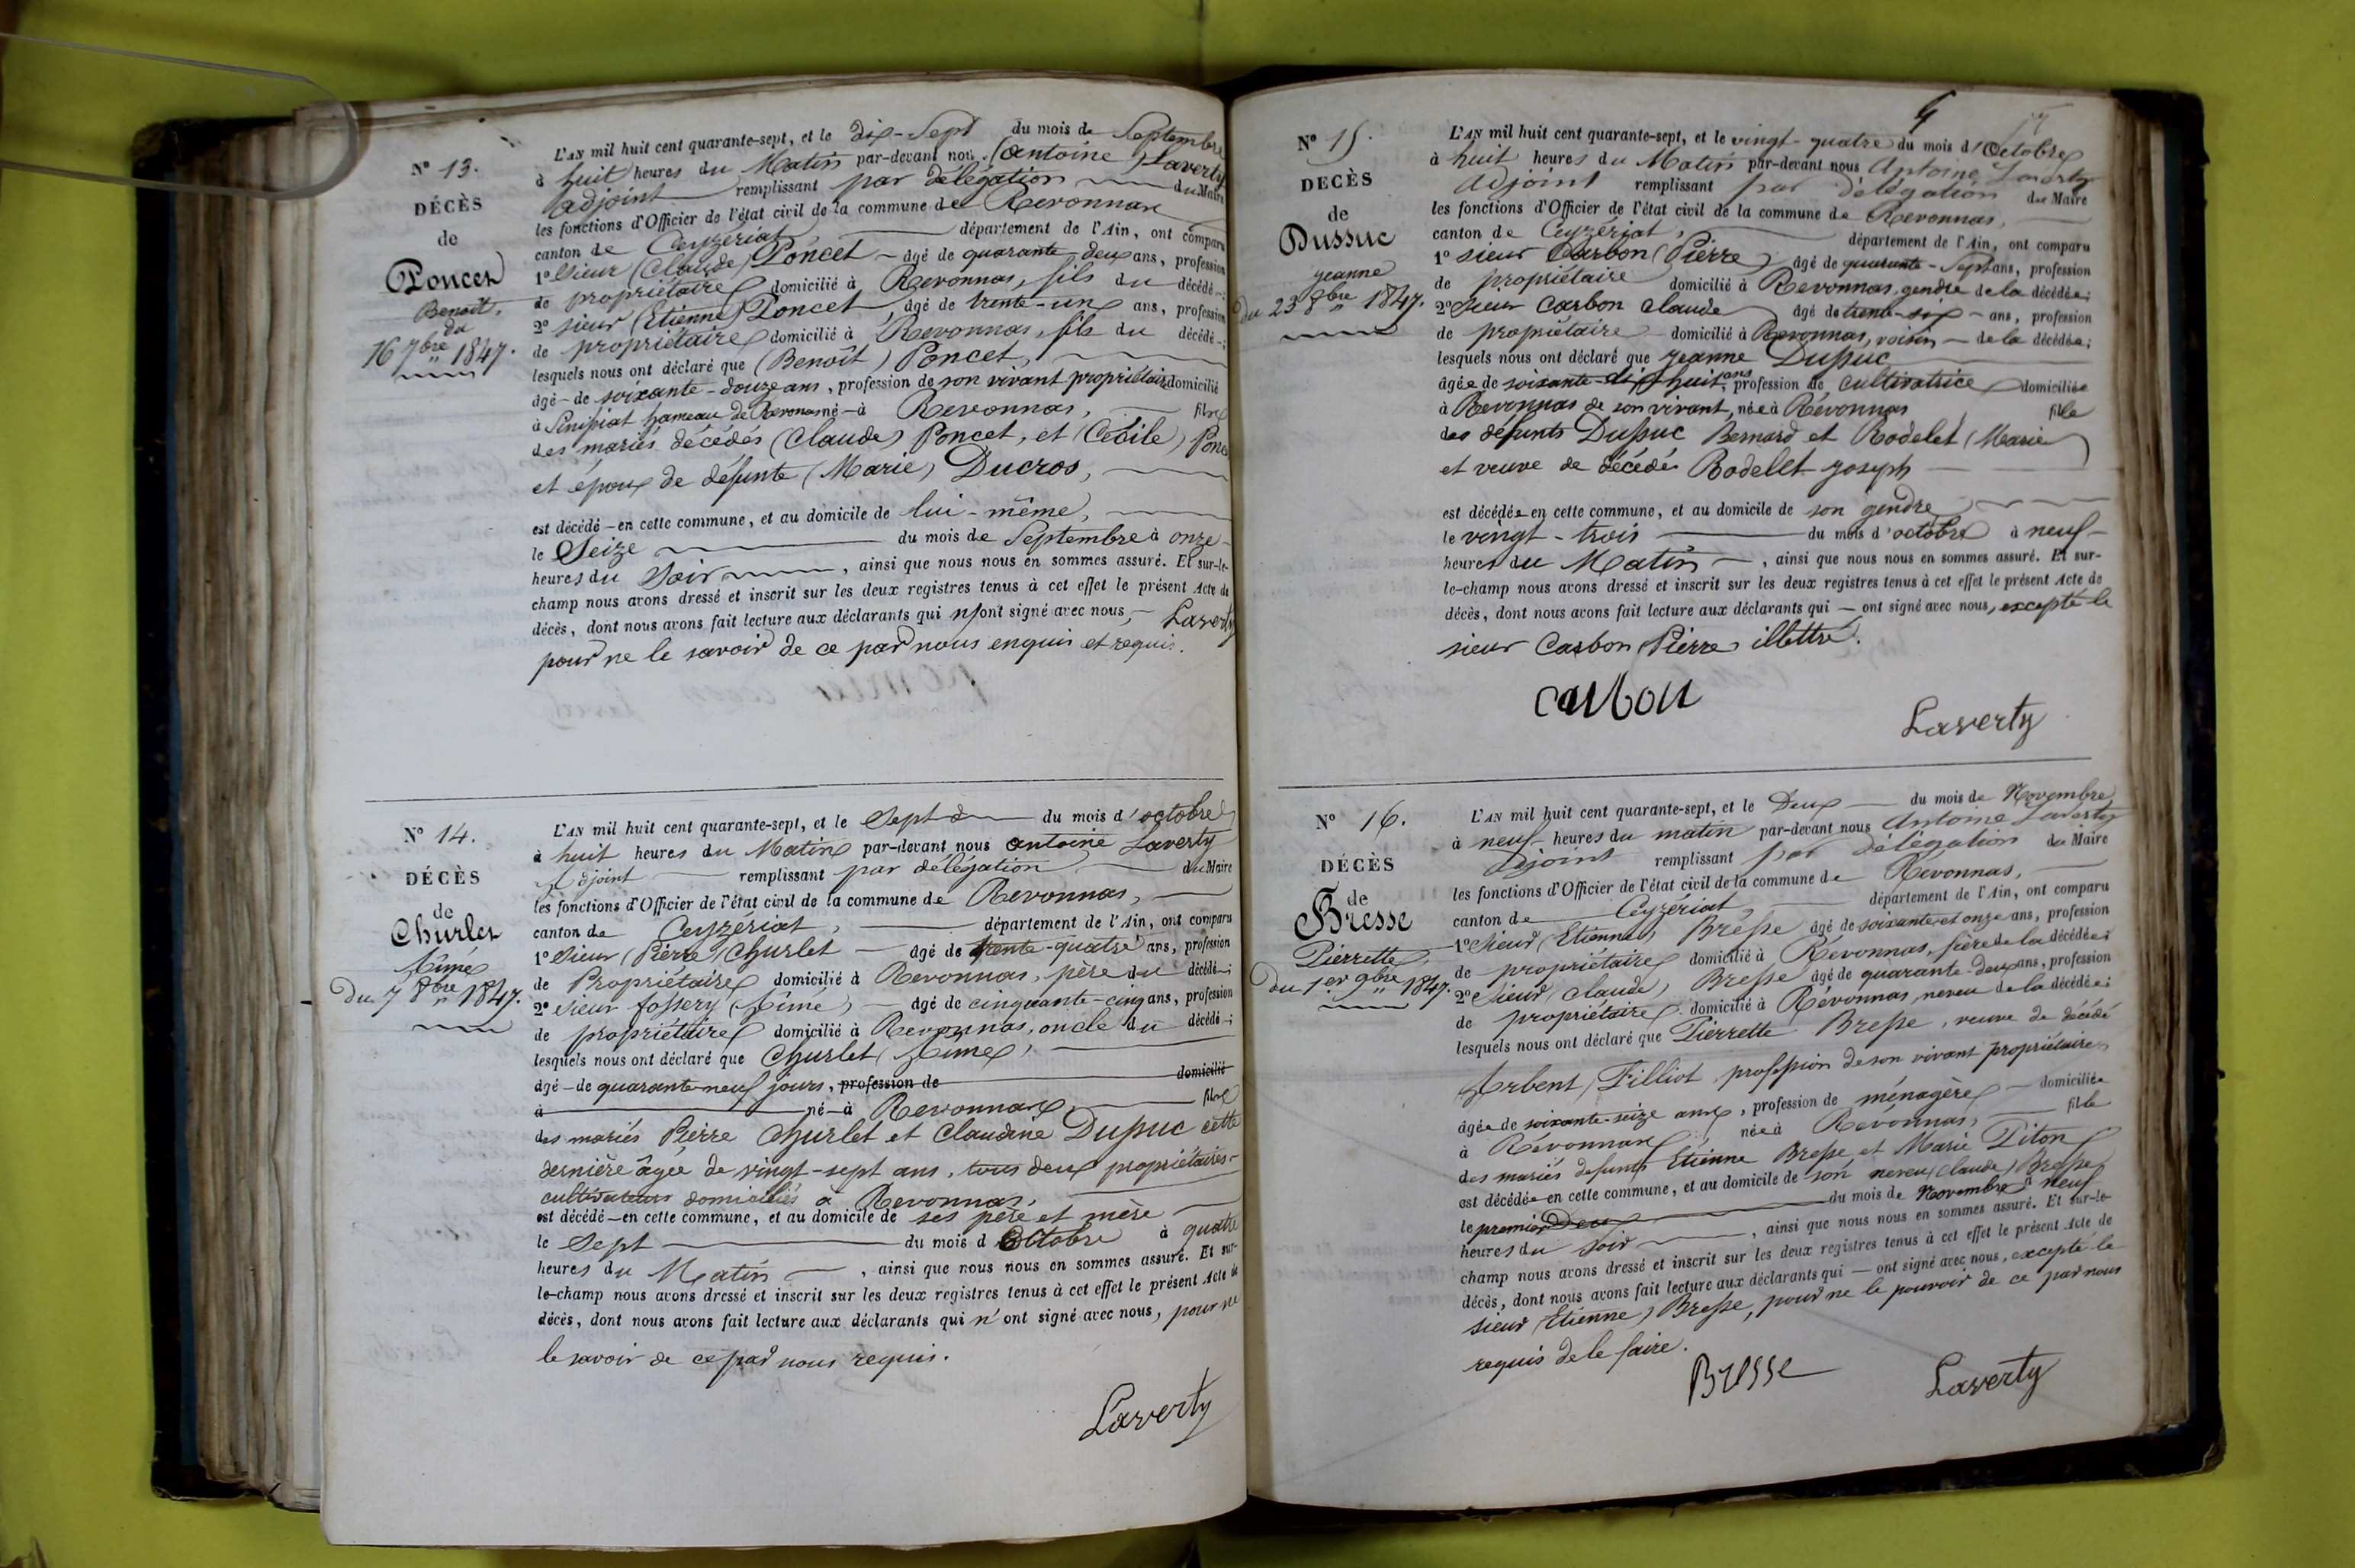 N° 13.
DÉCÈS
de
Poncet
Benoît,
du
16 7bre 1847.
L'AN mil huit cent quarante-sept, et le dix-Sept du mois de Septembre
à huit heures du Matin par-devant nous (Antoine) Laverty
adjoint remplissant par délégation du Maire
les fonctions d'Officier de l'état civil de la commune de Revonnas
canton de Ceyzériat, département de l'Ain, ont comparu
1° Sieur (Claude) Poncet – âgé de quarante-deux ans, profession
de propriétaire domicilié à Revonnas, fils du décédé –;
2° sieur (Etienne) Poncet, âgé de trente-un ans, profession
de propriétaire domicilié à Revonnas, fils du décédé –;
lesquels nous ont déclaré que (Benoît) Poncet,
âgé – de soixante-douze ans, profession de son vivant propriétaire domicilié
à hameau de Revonnas né – à Revonnas, fils
des mariés décédés (Claude) Poncet, et (Cécile) Ponc
et époux de défunte (Marie) Ducros,
est décédé – en cette commune, et au domicile de lui-même,
le Seize du mois de Septembre à onze
heures du Soir, ainsi que nous nous en sommes assuré. Et sur-le-
champ nous avons dressé et inscrit sur les deux registres tenus à cet effet le présent Acte de
décès, dont nous avons fait lecture aux déclarants qui n'ont signé avec nous, – Laverty
pour ne le savoir de ce par nous enquis et requis.
N° 14.
DÉCÈS
de
Churlet
Aimé
Du 7 8bre 1847.
L'AN mil huit cent quarante-sept, et le Sept du mois d'octobre
à huit heures du Matin par-devant nous antoine Laverty
Adjoint remplissant par délégation du Maire
les fonctions d'Officier de l'état civil de la commune de Revonnas,
canton de Ceyzériat, département de l'Ain, ont comparu
1° Sieur (Pierre) Churlet âgé de trente-quatre ans, profession
de Propriétaire domicilié à Revonnas, père du décédé –;
2° Sieur fossery (Aimé) – âgé de cinquante-cinq ans, profession
de propriétaire domicilié à Revonnas, oncle du décédé –;
lesquels nous ont déclaré que Churlet (Aimé),
âgé – de quarante-neuf jours, profession de domicilié
à né – à Revonnas, fils
des mariés Pierre Churlet et Claudine Dupuc cette
dernière âgée de vingt-sept ans, tous deux propriétaires-
cultivateurs domiciliés à Revonnas,
est décédé – en cette commune, et au domicile de ses père et mère
le Sept du mois d Octobre à quatre
heures du Matin, ainsi que nous nous en sommes assuré. Et sur-
le-champ nous avons dressé et inscrit sur les deux registres tenus à cet effet le présent Acte de
décès, dont nous avons fait lecture aux déclarants qui n'ont signé avec nous, pour ne
le savoir de ce par nous requis.
Laverty
N° 15.
DECÈS
de
Dussuc
Jeanne
du 23 8bre 1847.
L'AN mil huit cent quarante-sept, et le vingt-quatre du mois d'Octobre
à huit heures du Matin par-devant nous Antoine Laverty
Adjoint remplissant par délégation du Maire
les fonctions d'Officier de l'état civil de la commune de Revonnas,
canton de Ceyzériat, département de l'Ain, ont comparu
1° sieur Carbon (Pierre) âgé de quarante-Sept ans, profession
de propriétaire domicilié à Revonnas, gendre de la décédée;
2° Sieur Carbon Claude âgé de trente-six – ans, profession
de propriétaire domicilié à Revonnas, voisin – de la décédée;
lesquels nous ont déclaré que Jeanne Dussuc
âgée de soixante-dix huit ans, profession de cultivatrice domiciliée
à Revonnas de son vivant, née à Révonnas fille
des défunts Dussuc Bernard et Rodelet (Marie)
et veuve de décédé Rodelet Joseph
est décédée en cette commune, et au domicile de son gendre
le vingt-trois du mois d'octobre à neuf
heures du Matin –, ainsi que nous nous en sommes assuré. Et sur-
le-champ nous avons dressé et inscrit sur les deux registres tenus à cet effet le présent Acte de
décès, dont nous avons fait lecture aux déclarants qui – ont signé avec nous, excepté le
sieur Carbon Pierre illettré.
Carbon
Laverty
N° 16.
DÉCÈS
de
Bresse
Pierrette
Du 1er 9bre 1847.
L'AN mil huit cent quarante-sept, et le Deux du mois de Novembre
à neuf heures du matin par-devant nous Antoine Laverty
Adjoint remplissant par délégation du Maire
les fonctions d'Officier de l'état civil de la commune de Révonnas,
canton de Ceyzériat, département de l'Ain, ont comparu
1° Sieur (Etienne) Bresse âgé de soixante et onze ans, profession
de propriétaire domicilié à Révonnas, frère de la décédée;
2° Sieur (Claude) Bresse âgé de quarante-deux ans, profession
de propriétaire domicilié à Révonnas, neveu de la décédée;
lesquels nous ont déclaré que Pierrette Bresse, veuve de décédé
Arbent Filliot, profession de son vivant propriétaire
âgée de soixante-seize ans, profession de ménagère – domiciliée
à Révonnas, née à Révonnas, fille
des mariés défunts Etienne Bresse et Marie Piton
est décédée en cette commune, et au domicile de son neveu (Claude) Bresse
le premier Deux du mois de Novembre à neuf
heures du soir, ainsi que nous nous en sommes assuré. Et sur-le-
champ nous avons dressé et inscrit sur les deux registres tenus à cet effet le présent Acte de
décès, dont nous avons fait lecture aux déclarants qui – ont signé avec nous, excepté le
sieur (Etienne) Bresse, pour ne le pouvoir de ce par nous
requis de le faire.
Bresse
Laverty